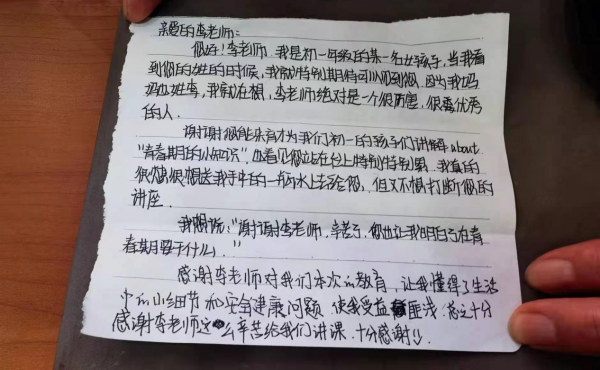 亲爱的李老师:
您好!李老师,我是初一年级的某一名女孩子,当我看
到您的姓的时候,我就特别期待可以见到您,因为我妈
妈也姓李,我就在想,李老师绝对是一个很厉害,很优秀
的人。
谢谢您能来有才为我们初一的孩子们讲解about
"青春期的小知识",也看见您站在台上特别特别累,我真的
很想很想送我手中的一瓶水上去给您,但又不想打断您的
讲座。
我想说:"谢谢李老师,辛苦了,您也让我明白了在青
春期要干什么。"
感谢李老师对我们本次的教育,让我懂得了生活
中的小细节和安全健康问题,使我受益匪浅,总之十分
感谢李老师这么辛苦给我们讲课,十分感谢!!